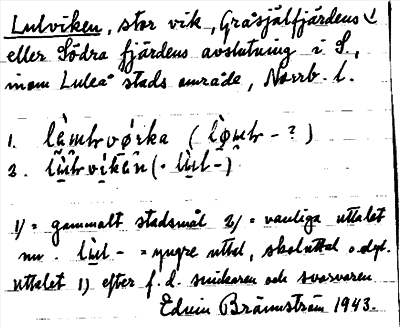 Lulviken, stor vik, Gråsjälfjärdens
eller Södra fjärdens avslutning i S,
inom Luleå stads område, Norrb. l.
1.
2.
1/ = gammalt stadsmål 2/ = vanliga uttalet
nu. lùl- = yngre uttal, skoluttal o.dyl.
uttalet 1) efter f.d. snickaren och svarvaren
Edvin Brännström 1943.